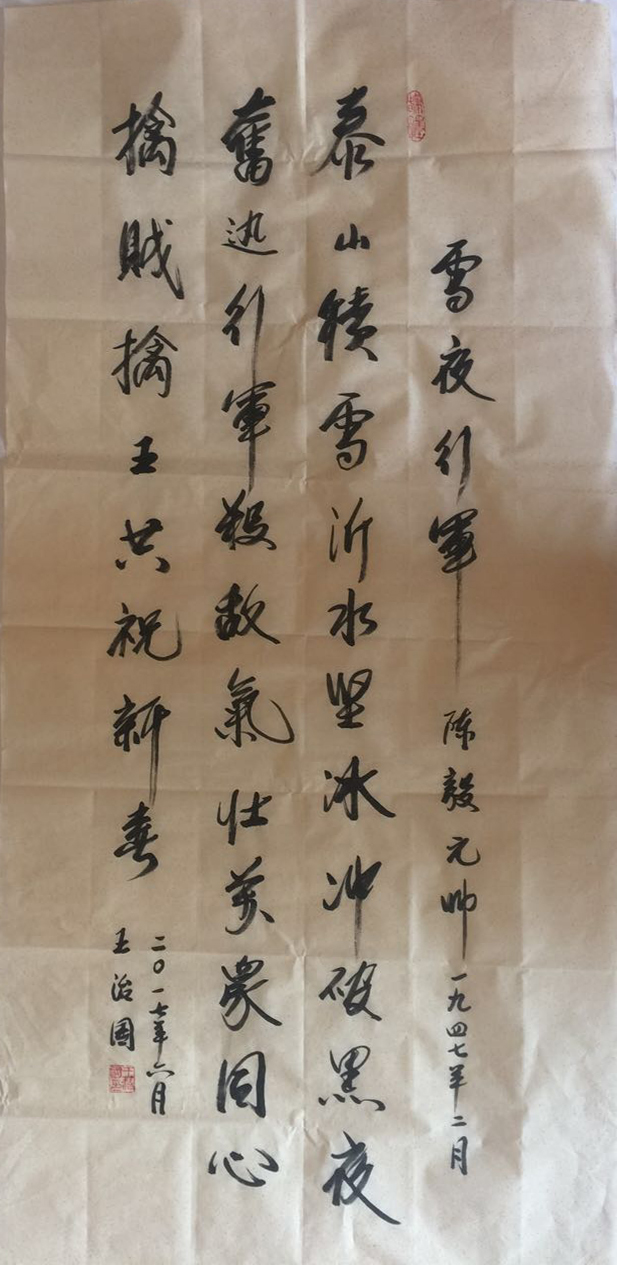 雪夜行軍 陈毅元帅 一九四七年二月
泰山積雪沂水坚冰冲破黑夜
奮迅行軍殺敌氣壮萬眾同心
擒賊擒王共祝新春
二〇一七年六月
王治國